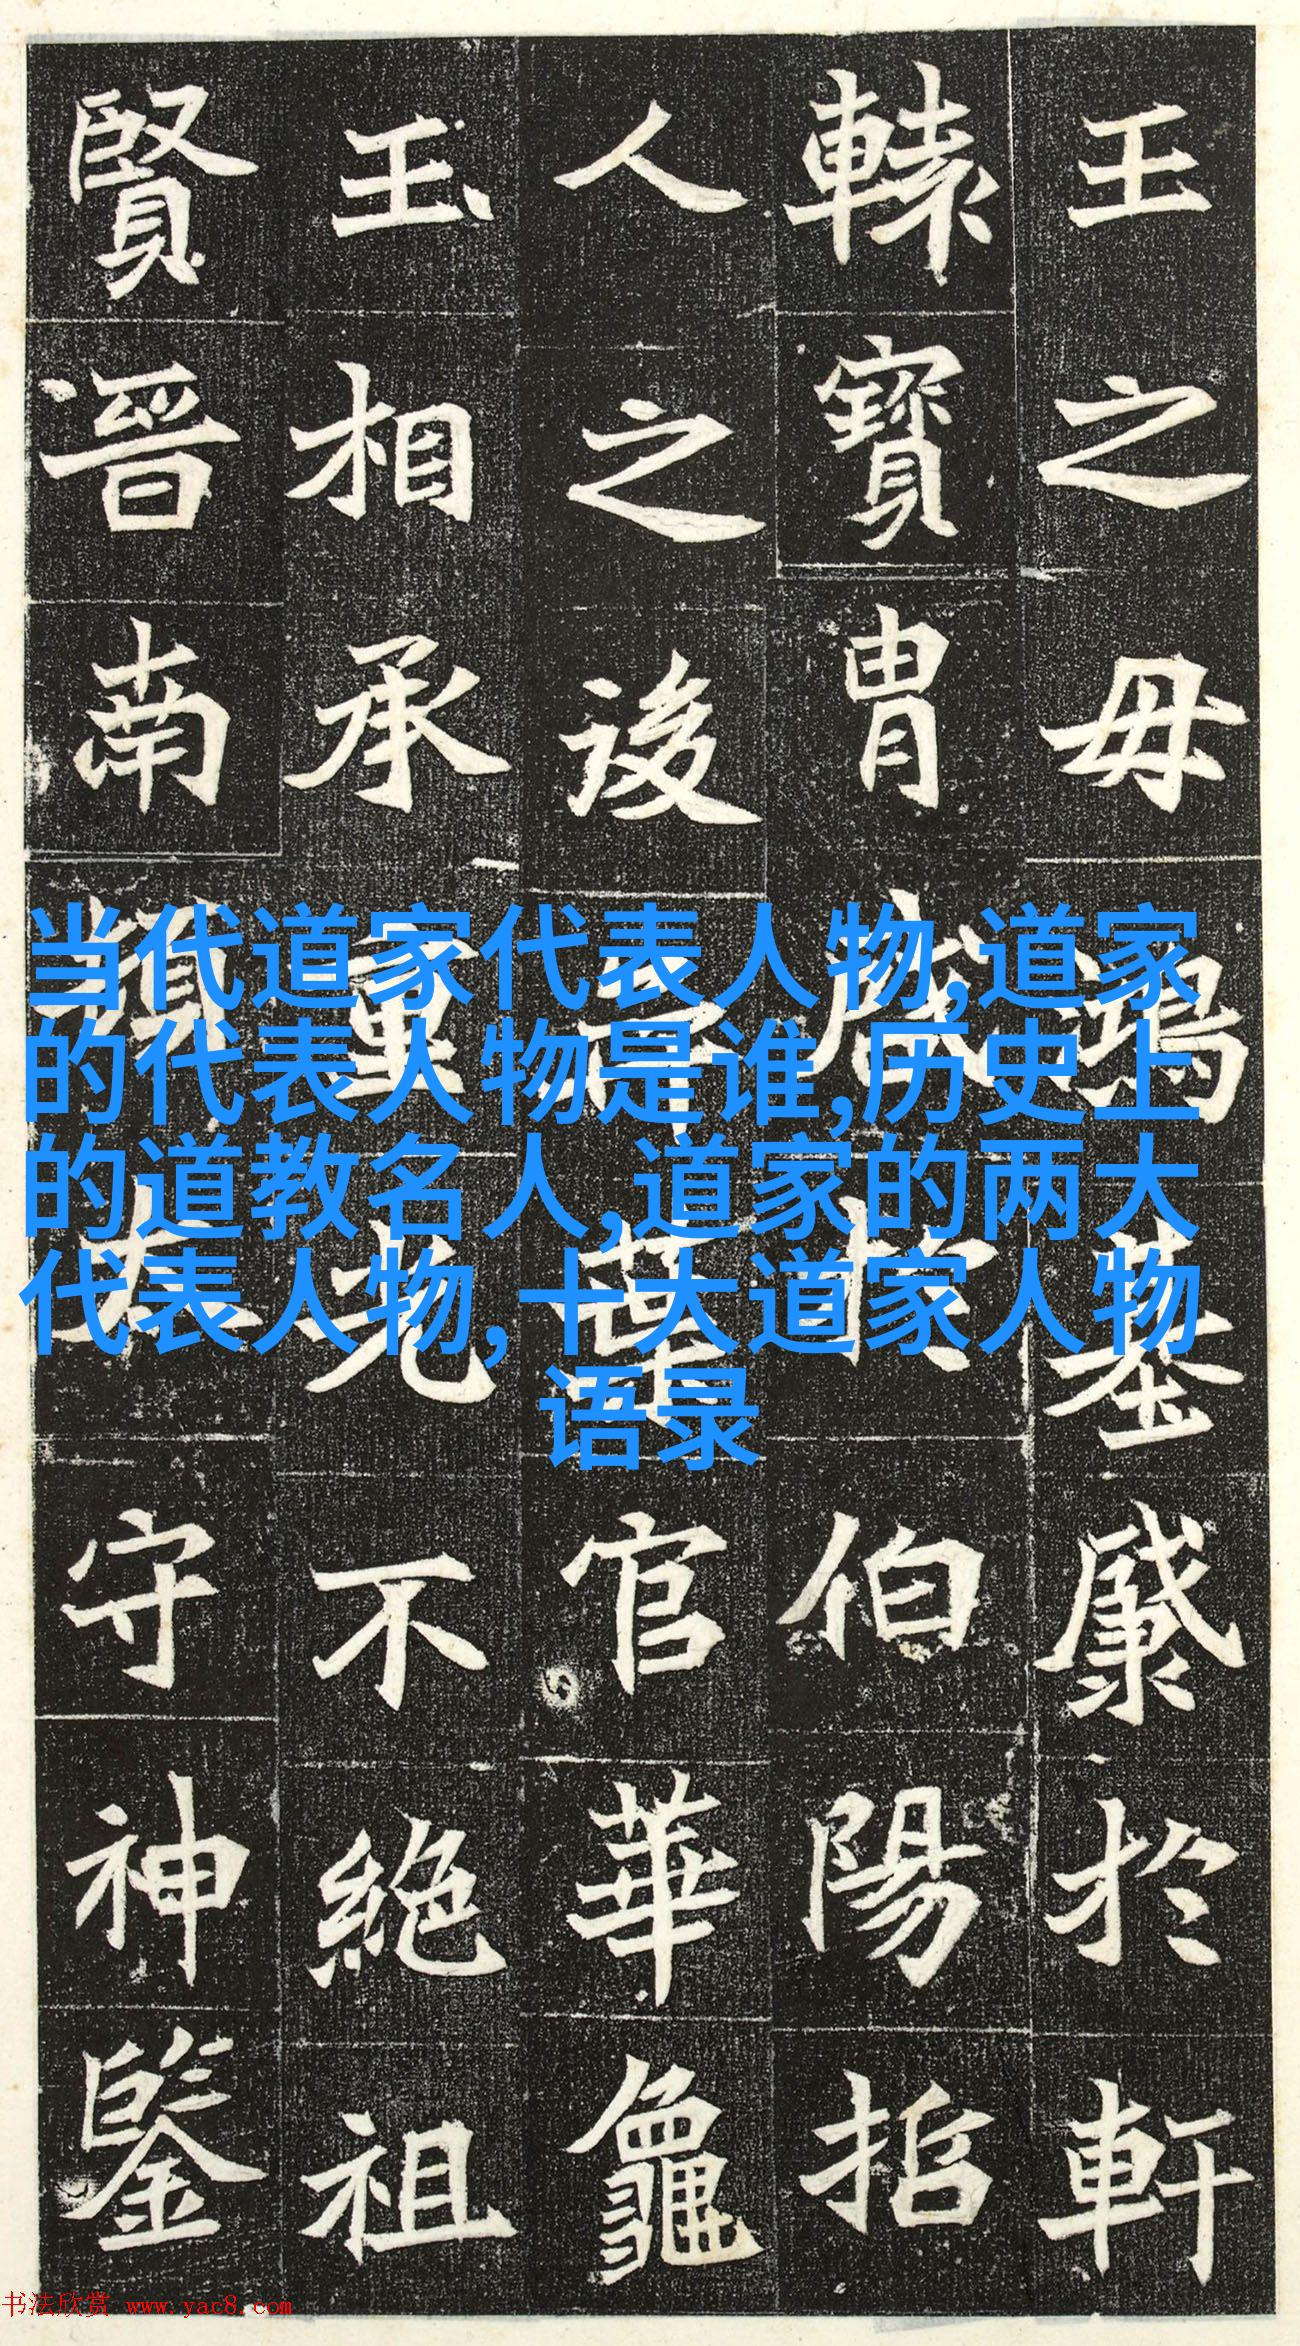 王之母鴻基於軒
轅寶胄於伯陽招
人之後葉官華龜
玉相承重光不絶祖
賢晉南頓太守神鑒
当代道家代表人物,道家
的代表人物是谁,历史上
的道教名人,道家的两大
代表人物,十大道家人物
语录
书法欣赏 www.yac8.com